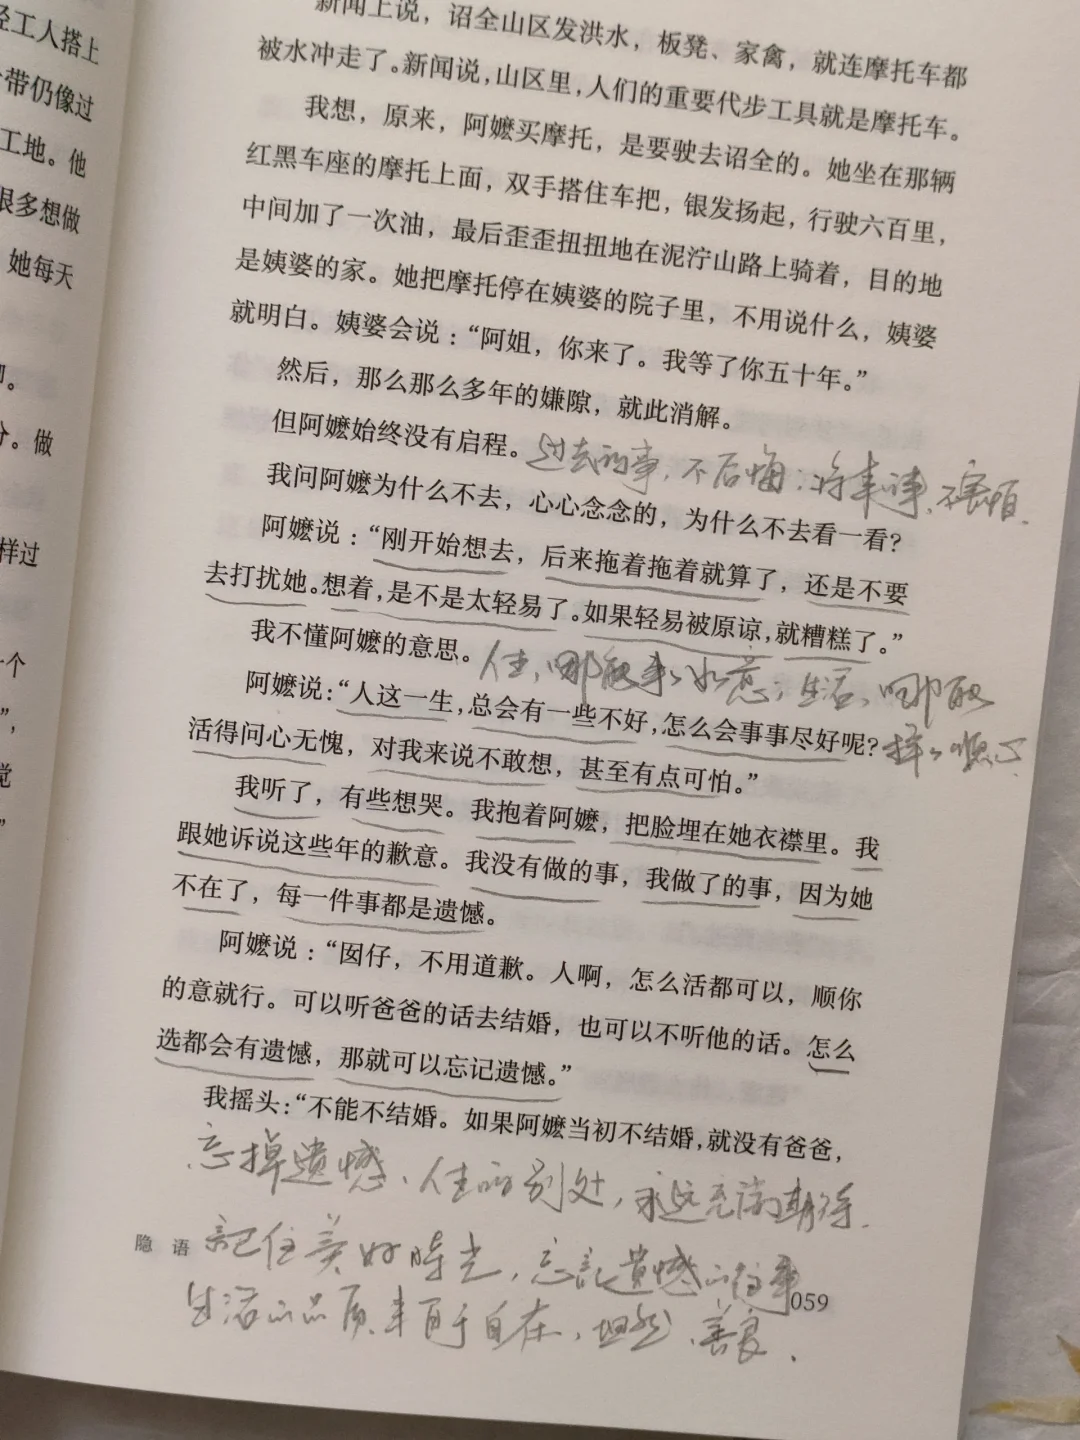 轻工人搭上
带仍像过
工地。他
很多想做
她每天
分。做
样过
一个
觉
新闻上说，诏全山区发洪水，板凳、家禽，就连摩托车都
被水冲走了。新闻说，山区里，人们的重要代步工具就是摩托车。
我想，原来，阿嬷买摩托，是要驶去诏全的。她坐在那辆
红黑车座的摩托上面，双手搭住车把，银发扬起，行驶六百里，
中间加了一次油，最后歪歪扭扭地在泥泞山路上骑着，目的地
是姨婆的家。她把摩托停在姨婆的院子里，不用说什么，姨婆
就明白。姨婆会说：“阿姐，你来了。我等了你五十年。”
然后，那么那么多年的嫌隙，就此消解。
但阿嬷始终没有启程。
过去的事，不后悔；将来的事，不烦恼。
我问阿嬷为什么不去，心心念念的，为什么不去看一看？
阿嬷说：“刚开始想去，后来拖着拖着就算了，还是不要
去打扰她。想着，是不是太轻易了。如果轻易被原谅，就糟糕了。”
我不懂阿嬷的意思。
人生，哪能事事如意；生活，哪能
样样顺心
阿嬷说：“人这一生，总会有一些不好，怎么会事事尽好呢？
活得问心无愧，对我来说不敢想，甚至有点可怕。”
我听了，有些想哭。我抱着阿嬷，把脸埋在她衣襟里。我
跟她诉说这些年的歉意。我没有做的事，我做了的事，因为她
不在了，每一件事都是遗憾。
阿嬷说：“囡仔，不用道歉。人啊，怎么活都可以，顺你
的意就行。可以听爸爸的话去结婚，也可以不听他的话。怎么
选都会有遗憾，那就可以忘记遗憾。”
我摇头：“不能不结婚。如果阿嬷当初不结婚，就没有爸爸，
忘掉遗憾、人生的别处，永远充满期待.
记住美好时光，忘记遗憾的往事
生活的品质来自于自在，坦然、善良.
隐 语
059